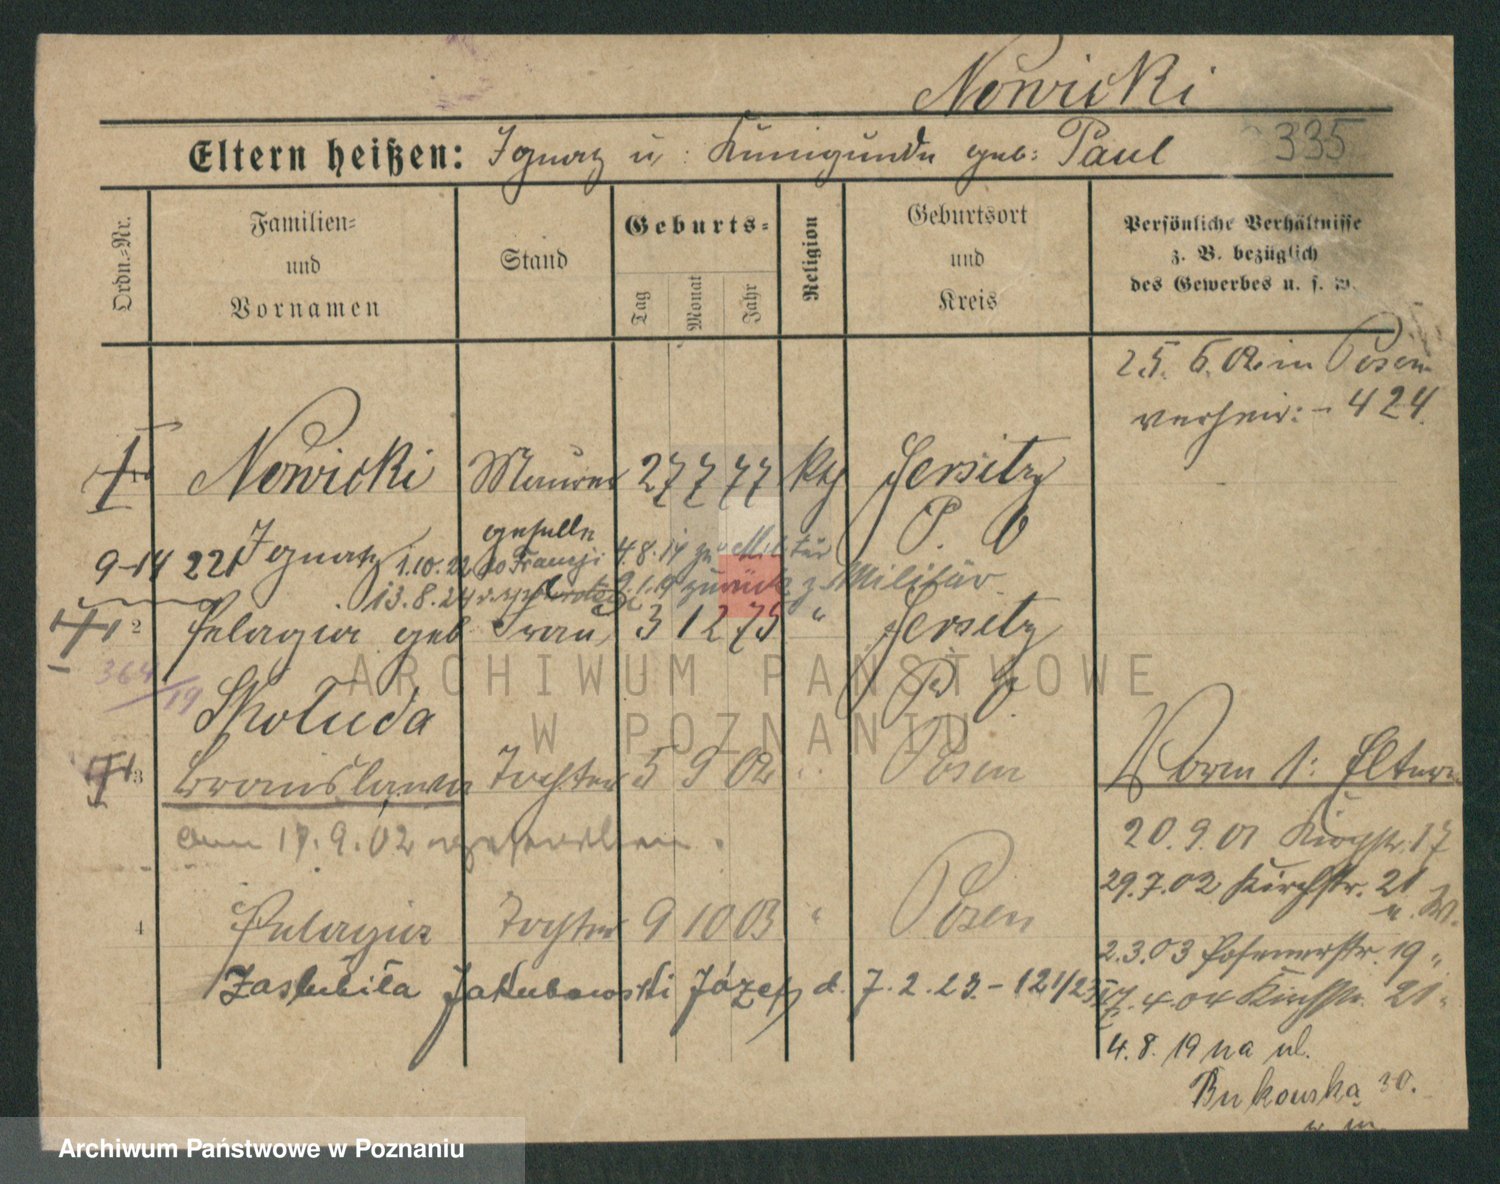 Nowicki
Eltern heißen: Ignatz u: Kunigunde geb: Paul
335
Ordn.-Nr.
Familien-
und
Vornamen
Stand
Geburts-
Tag
Monat
Jahr
Religion
Geburtsort
und
Kreis
Persönliche Verhältnisse
z. B. bezüglich
des Gewerbes u. s. w.
25. 6. 02. in Posen
verheir: - 424.
1 Nowicki Maurer 27 7 77 kth Jersitz
geselle P. O
Ignatz 4.8.14 zum Militär
9-14 221 1.10.22 do Francji
13.8.24 zurück z. Militär
2 Pelagia geb Frau, 3 12 75 " Jersitz
364/19
Skotuda P. O
3 Bronislawa Tochter 5 9 02 " Posen
Vorm 1: Eltern
am 17.9.02 gestorben.
20.9.01 Kirchstr. 17
29.7.02 Kirchstr. 21
u. W.
4 Pelagia Tochter 9 10 03 " Posen
2.3.03 Posenerstr. 19 "
Zaślubiła Jakubowski Józef d. 7.2.23. - 121/23
17.4.04 Kirchstr. 21 "
4.8.19 na ul.
Bukowska 30.
w m.
ARCHIWUM PAŃSTWOWE
W POZNANIU
Archiwum Państwowe w Poznaniu